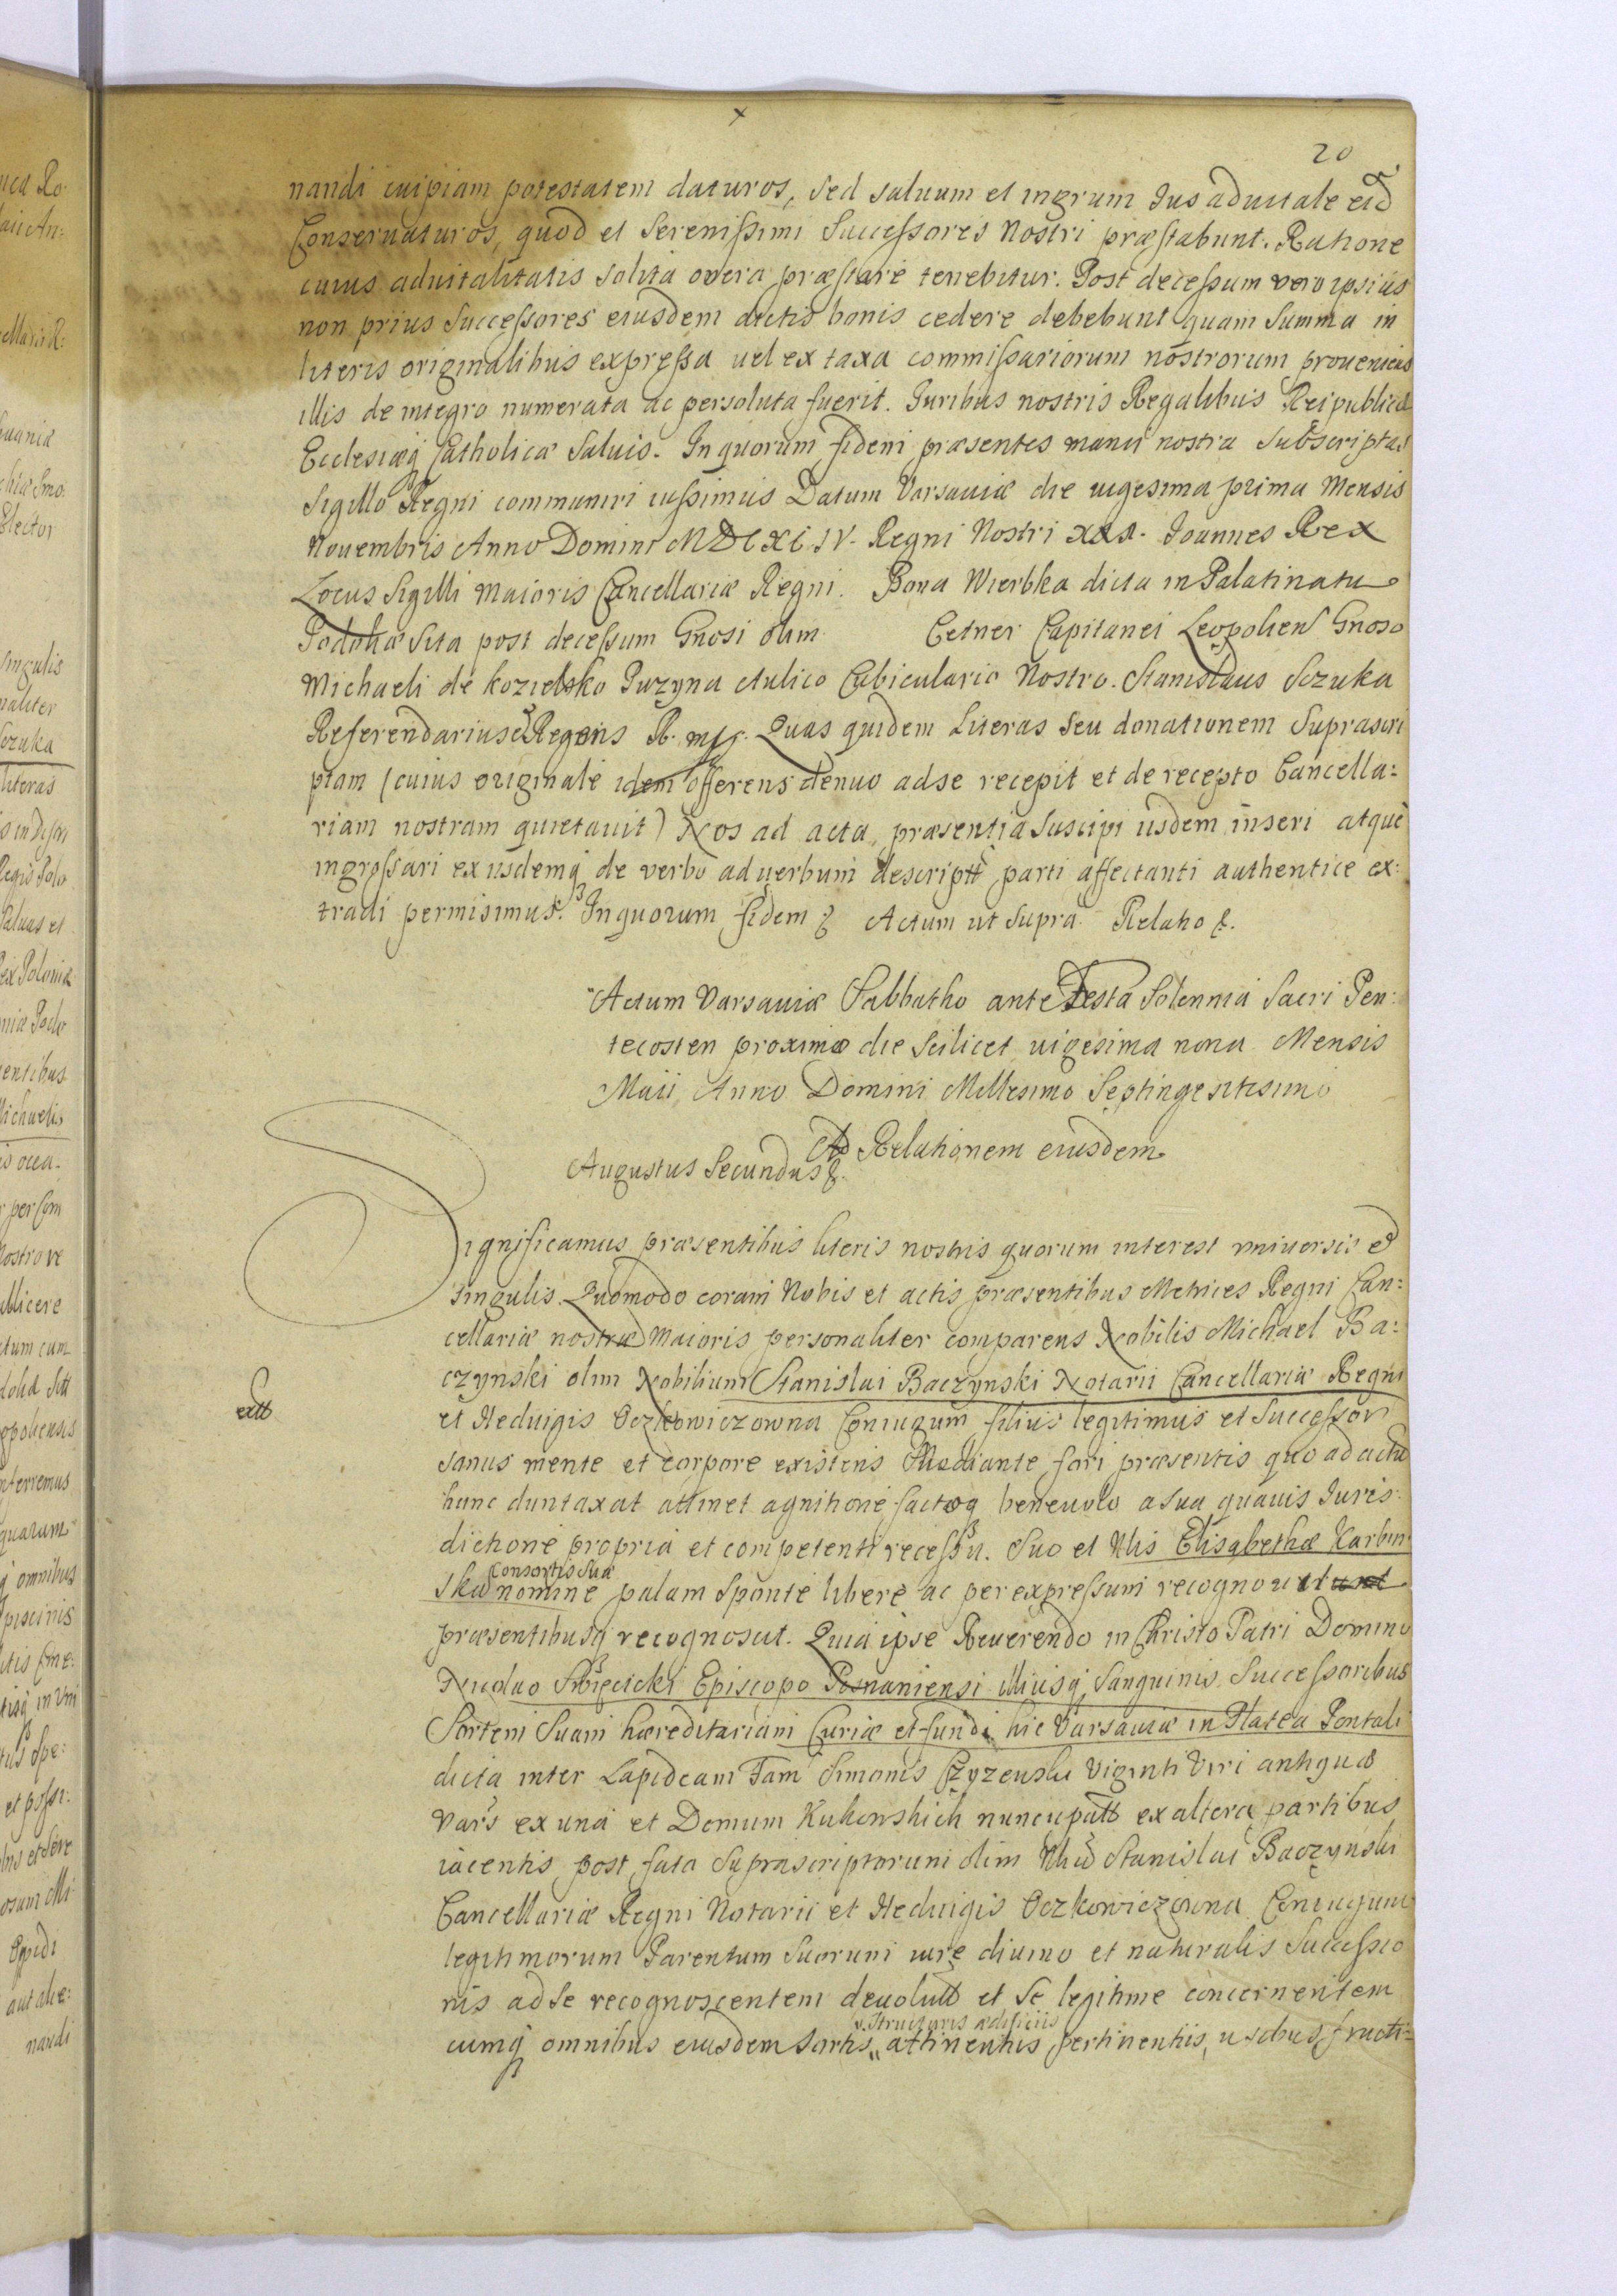 20
nandi cuipiam potestatem daturos, sed saluum et ingrum Ius aduitale eid
Conseruaturos, quod et Serenissimi Successores Nostri præstabunt. Ratione
cuius aduitalitatis solita onera præstare tenebitur. Post decessum vero ipsius
non prius Successores eiusdem dictis bonis cedere debebunt quam Summa in
literis originalibus expressa uel ex taxa commissariorum nostrorum proueniens
illis de integro numerata ac persoluta fuerit. Iuribus nostris Regalibus Reipublicæ
Ecclesiæq Catholicæ Saluis. In quorum fidem præsentes manu nostra Subscriptas
Sigillo Regni communiri iussimus Datum Varsauiæ die uigesima prima Mensis
Nouembris Anno Domini MDCXCIV. Regni Nostri XXI. Joannes Rex
Locus Sigilli Maioris Cancellariæ Regni. Bona Wierbka dicta in Palatinatu
Podoliæ Sita post decessum Gnosi olim Cetner Capitanei Leopolien Gnoso
Michaeli de Kozielsko Puzyna Aulico Cubiculario Nostro. Stanislaus Sczuka
Referendarius Regens R. mp. Quas quidem Literas Seu donationem Suprascri
ptam (cuius originale idem offerens denuo ad se recepit et de recepto Cancella:
riam nostram quietauit) Nos ad acta præsentia Suscipi iisdem inseri atque
ingrossari ex iisdemq de verbo ad verbum descriptt parti affectanti authentice ex:
tradi permisimus. In quorum fidem & Actum ut Supra Relatio &.
Actum Varsauiæ Sabbatho ante Festa Solennia Sacri Pen:
tecosten proximo die Scilicet uigesima nona Mensis
Maii Anno Domini Millesimo Septingentesimo
Ad Relationem eiusdem
Augustus Secundus &.
Significamus præsentibus literis nostris quorum interest vniuersis et
Singulis. Quomodo coram Nobis et actis præsentibus Metrices Regni Can:
cellariæ nostræ Maioris personaliter comparens Nobilis Michael Ba:
czynski olim Nobilium Stanislai Baczynski Notarii Cancellariæ Regni
extt
et Heduigis Oczkowiczowna Coniugum filius legitimus et Successor
sanus mente et corpore existens Mediante fori præsentis quo ad actu
hunc duntaxat attinet agnitione factaq beneuolo a sua quauis Iuris:
dictione propria et competenti recessu. Suo et Nlis Elisabethæ Karbin
Consortis Suæ
ska nomine palam Sponte libere ac per expressum recognouit
præsentibusq recognoscit. Quia ipse Reuerendo in Christo Patri Domino
Nicolao Swięcicki Episcopo Posnaniensi illiusq Sanguinis Successoribus
Sortem Suam hæreditariam Curiæ et fundi hic Varsauiæ in Platea Pontali
dicta inter Lapideam Fam Simonis Czyzenski Viginti Viri antiquæ
Vars ex una et Domum Kukowskich nuncupatt ex altera partibus
iacentis post fata Suprascriptorum olim Stanislai Baczynski
Cancellariæ Regni Notarii et Heduigis Oczkowiczowna Coniugum
legitimorum Parentum Suorum iure diuino et naturalis Successio
nis ad Se recognoscentem deuolutt et Se legitime concernentem
Structuris ædificiis
cumq omnibus eiusdem Sortis attinentiis pertinentiis, usibus, fructi=